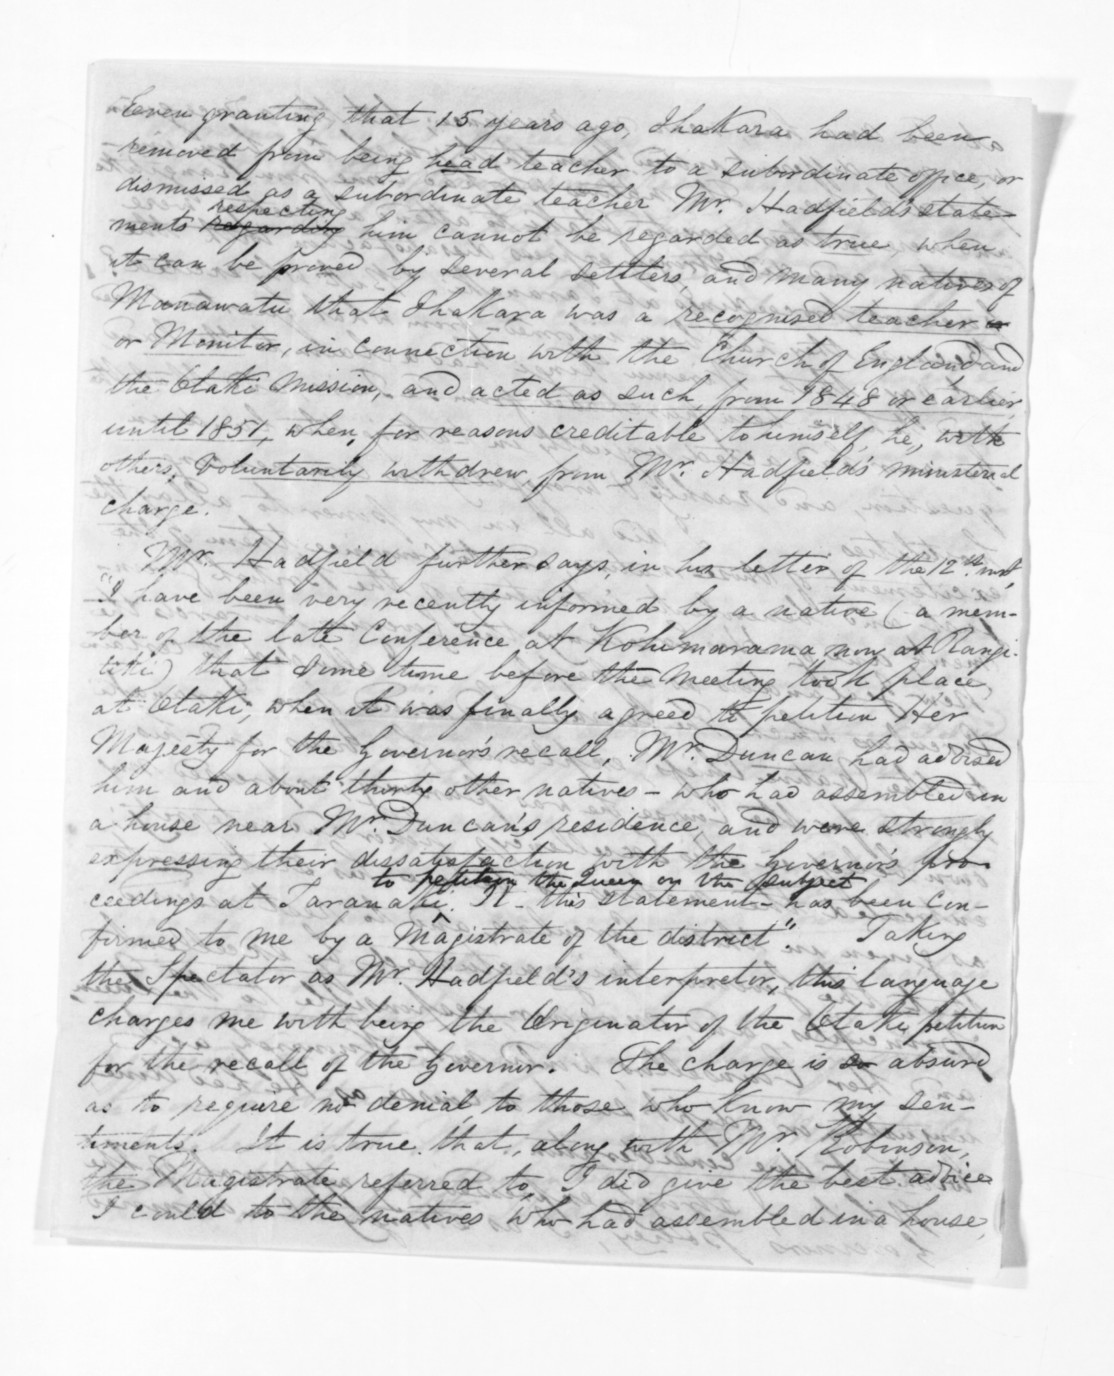 Even granting that 15 years ago, Ihakara had been
removed from being head teacher to a subordinate office, or
dismissed as a subordinate teacher Mr. Hadfield's state-
respecting
ments regarding him cannot be regarded as true when
it can be proved by several settlers, and many natives of
Manawatu that Ihakara was a recognised teacher
or Monitor, in connection with the Church of England and
the Otaki Mission, and acted as such, from 1848 or earlier
until 1851, when, for reasons creditable to himself, he, with
others, voluntarily withdrew, from Mr. Hadfield's ministerial
charge.
Mr. Hadfield further says, in his letter of the 12th inst,
"I have been very recently informed by a native (a mem-
ber of the late Conference at Kohimarama now at Rangi-
tiki) that some time before the Meeting took place,
at Otaki, when it was finally agreed to petition Her
Majesty for the Governor's recall, Mr. Duncan had advised
him and about thirty other natives - who had assembled in
a house near Mr. Duncan's residence, and were strongly
expressing their dissatisfaction with the Governor's pro-
to petition the Queen on the subject
ceedings at Taranaki. It - this statement - has been con-
firmed to me by a Magistrate of the district". Taking
the Spectator as Mr. Hadfield's interpretor, this language
charges me with being the Originator of the Otaki petition
for the recall of the Governor. The charge is so absurd
as to require no denial to those who know my sen-
timents. It is true that, along with Mr. Robinson,
the Magistrate referred to, I did give the best advice
I could to the natives who had assembled in a house,